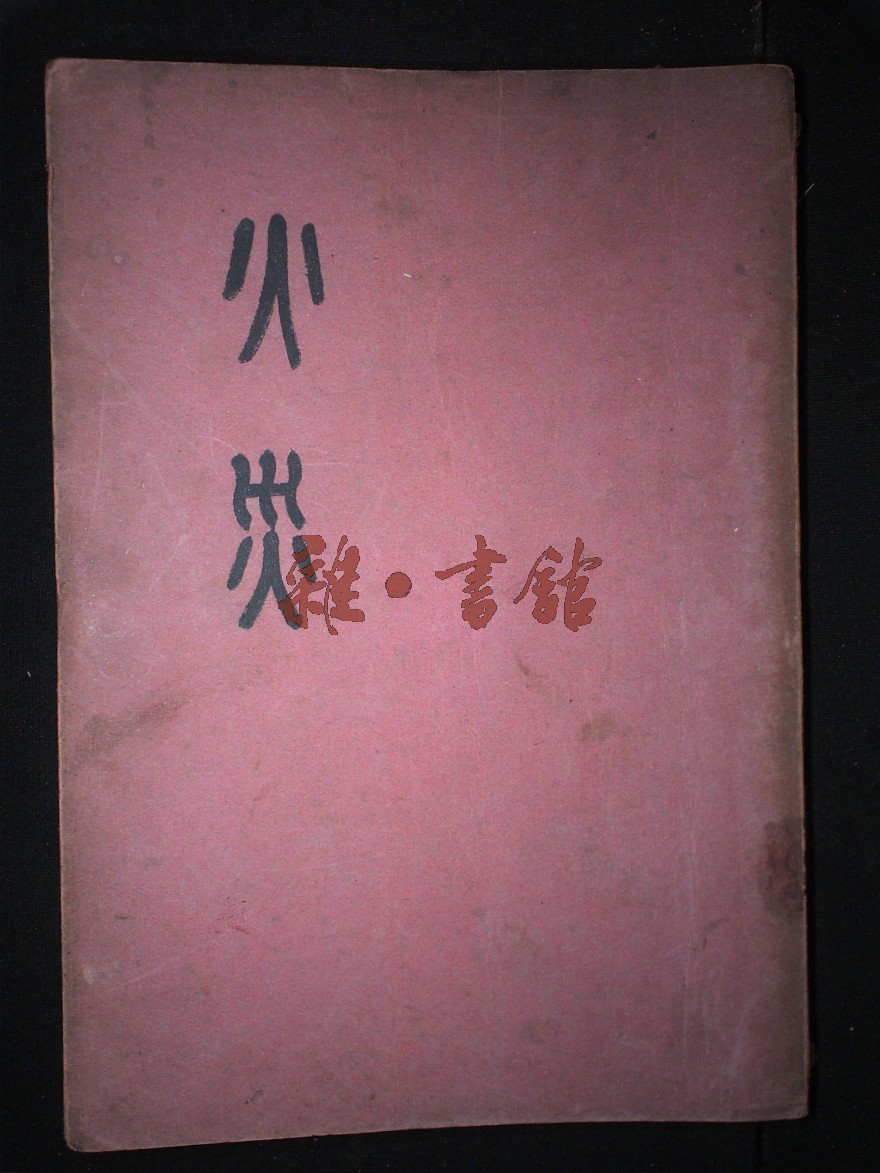 火災
雜·書館